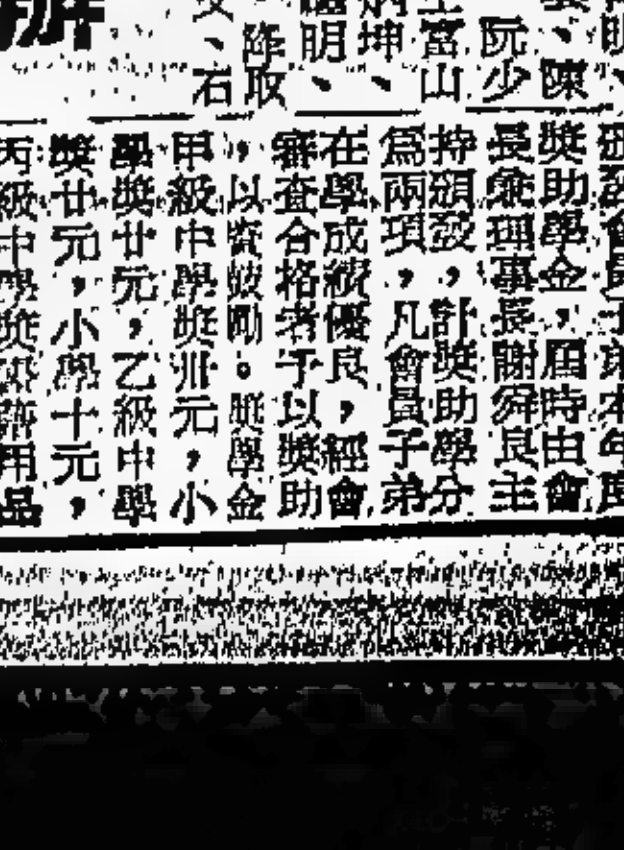 、陳
阮少
富山
坤、
明、
、石
頒發會員子弟本年度
獎助學金,屆時由會
長兼理事長謝舜良主
持頒發,計獎助學分
爲兩項,凡會員子弟
在學成績優良,經會
審查合格者予以獎助
,以資鼓勵。獎學金
甲級中學獎卅元,小
學獎廿元,乙級中學
獎廿元,小學十元,
丙級中學獎用品